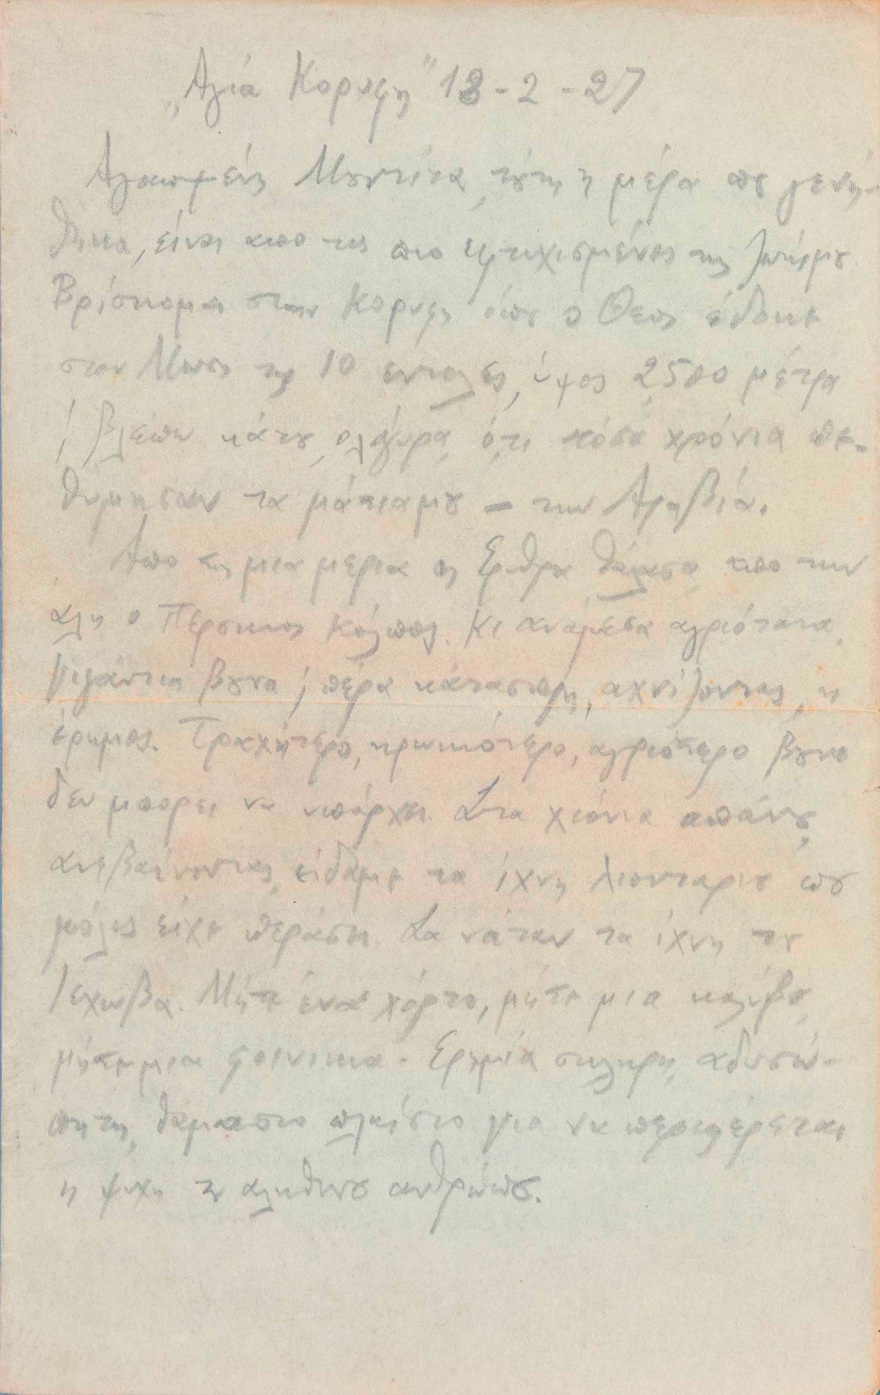 „Αγία Κορυφη" 18-2-27
Αγαπημένη Μουντίτα, τούτη η μέρα που γενή-
θηκα, είναι απο τις πιο ευτυχισμένες της ζωήςμου.
Βρίσκομαι στην Κορυφη όπου ο Θεος έδωκε
στον Μωυση τις 10 εντολες, ύψος 2500 μέτρα
βλέπω κάτου, ολόγυρα, ό,τι τόσα χρόνια επε-
θύμησαν τα μάτιαμου – την Αραβία.
Απο τη μια μερια η Ερυθρα Θάλασα, απο την
άλη ο Περσικος Κόλπος. Κι ανάμεσα αγριότατα,
γιγάντια βουνα, πέρα κάτασπρη, αχνίζοντας, η
έρημος. Τραχύτερο, ηρωικότερο, αγριότερο βουνο
δεν μπορει να υπάρχει. Στα χιόνια απάνου,
ανεβαίνοντας, είδαμε τα ίχνη λιονταριου που
μόλις είχε περάσει. Σα νάταν τα ίχνη του
Ιεχωβα. Μήτε ένα χόρτο, μήτε μια καλύβα,
μήτε μια φοινικια. Ερημία σκληρη, αδυσώ-
πητη, θαμασιο πλαίσιο για να περιφέρεται
η ψυχη του αληθινου ανθρώπου.